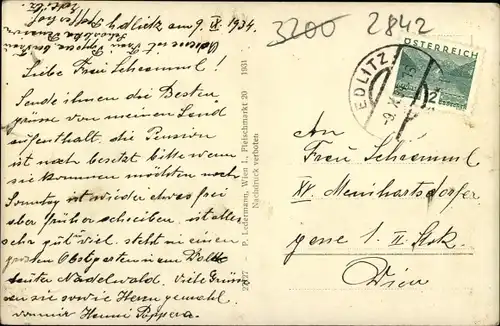 3200 2842
Edlitz am 9. IX 1934.
Liebe Frau Schramml!
Sende ihnen die Besten
grüsse von meinen Land
aufenthalt. die Pension
ist noch besetzt bitte wenn
sie kommen möchten noch
Sonntag ist wieder etwas frei
aber früher schreiben. ist alles
sehr gut viel. steht in einen
großen Obstgarten
lauter Nadelwald. Viele Grüsse
an sie sowie Herrn gemahl
von mir Henni Poppera.
P. Ledermann, Wien I., Fleischmarkt 20 1931
Nachdruck verboten
ÖSTERREICH
2
GROSCHEN
EDLITZ
An
Frau Schramml
XV. Meinhartsdorfer
gasse 1. II. Stck.
Wien